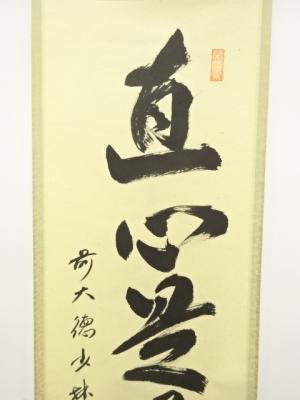 直心是
前大德少林